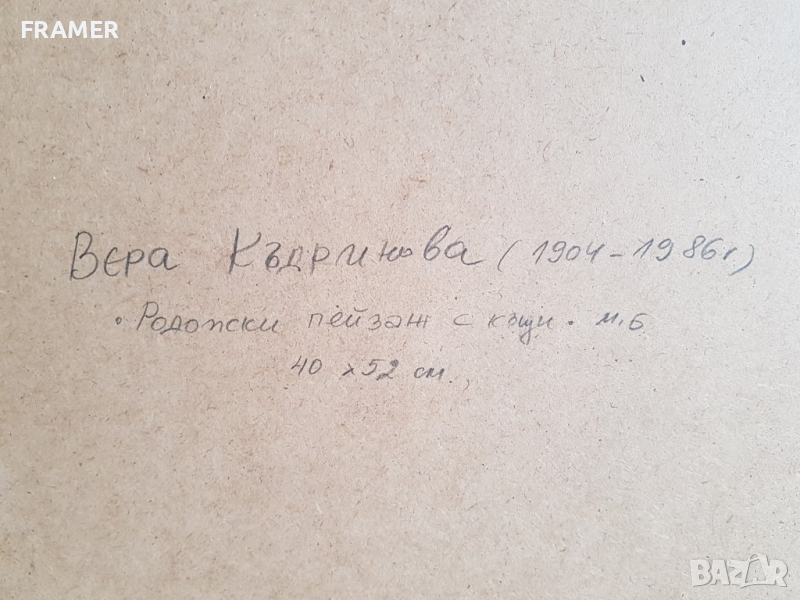 FRAMER
Вера Къдринова (1904-1986г)
• Родопски пейзаж с къщи • м.б
40 х 52 см.
BAZAR